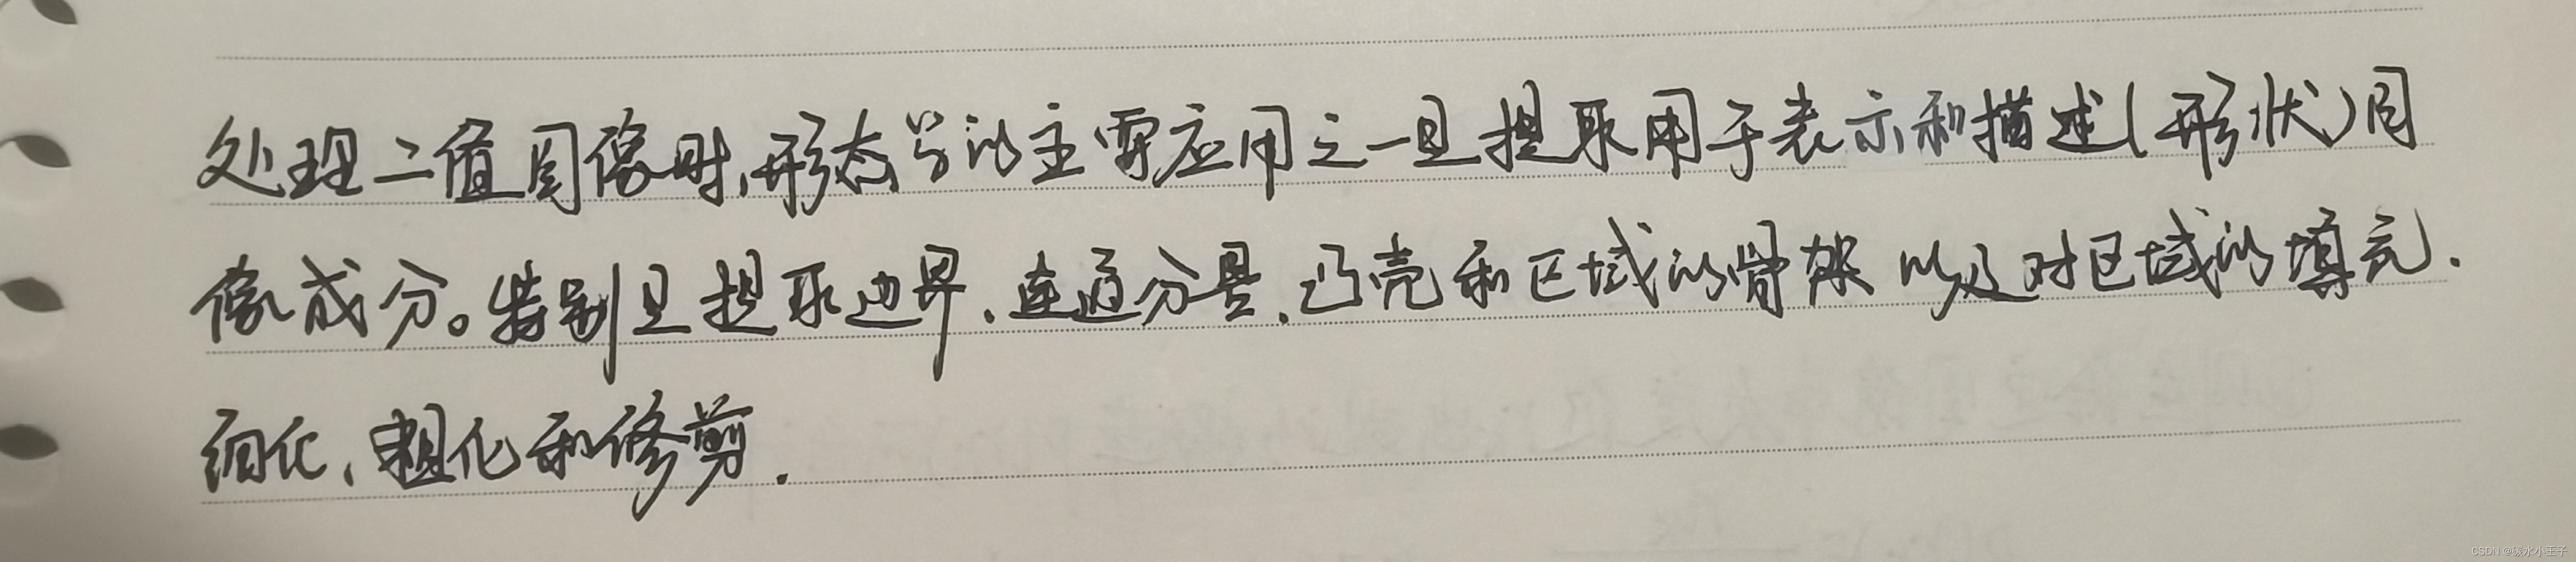 处理二值图像时,形态学的主要应用之一是提取用于表示和描述(形状)图
像成分。特别是提取边界、连通分量、凸壳和区域的骨架以及对区域的填充.
细化、粗化和修剪.
CSDN @碳水小王子